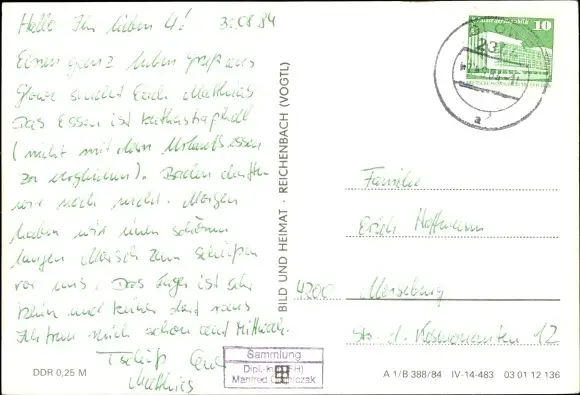 Hallo Ihr lieben 4! 30.08.84
Einen ganz lieben Gruß aus
Glowe sendet Euch Matthias
Das Essen ist kathastraphall
(nicht mit dem Urlaubsessen
zu vergleichen). Baden durften
wir noch nicht. Morgen
haben wir einen schönen
langen Marsch zum
vor uns. Das Lager ist sehr
klein und keiner darf raus
mich schon auf Mittwoch.
Tschüß Euer
Matthias
DDR 0,25 M
BILD UND HEIMAT · REICHENBACH (VOGTL)
10
GLOWE
a
Familie
Erich Hoffmann
4200 Merseburg
Str. d. Kosmonauten 12
Sammlung
Manfred
A 1/B 388/84 IV-14-483 03 01 12 136